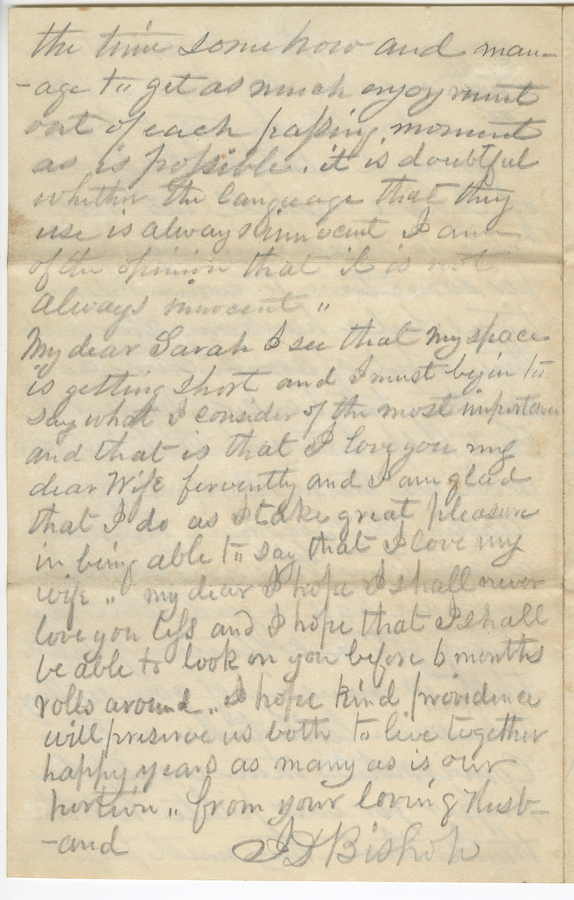 the time some how and man-
-age to get as much enjoyment
out of each passing moment
as is possible. it is doubtful
whether the language that they
use is always innocent I am
of the opinion that it is not
always innocent "
My dear Sarah I see that my space
is getting short and I must begin to
say what I consider of the most importance
and that is that I love you my
dear Wife fervently and I am glad
that I do as I take great pleasure
in being able to say that I love my
wife " my dear I hope I shall never
love you less and I hope that I shall
be able to look on you before 6 months
rolls around " I hope kind providence
will preserve us both to live together
happy years as many as is our
portion " from your loving Husb-
-and J D Bishop